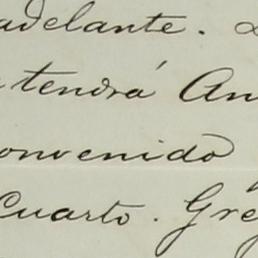 adelante.
tendrá An
onvenido
Cuarto. Greg